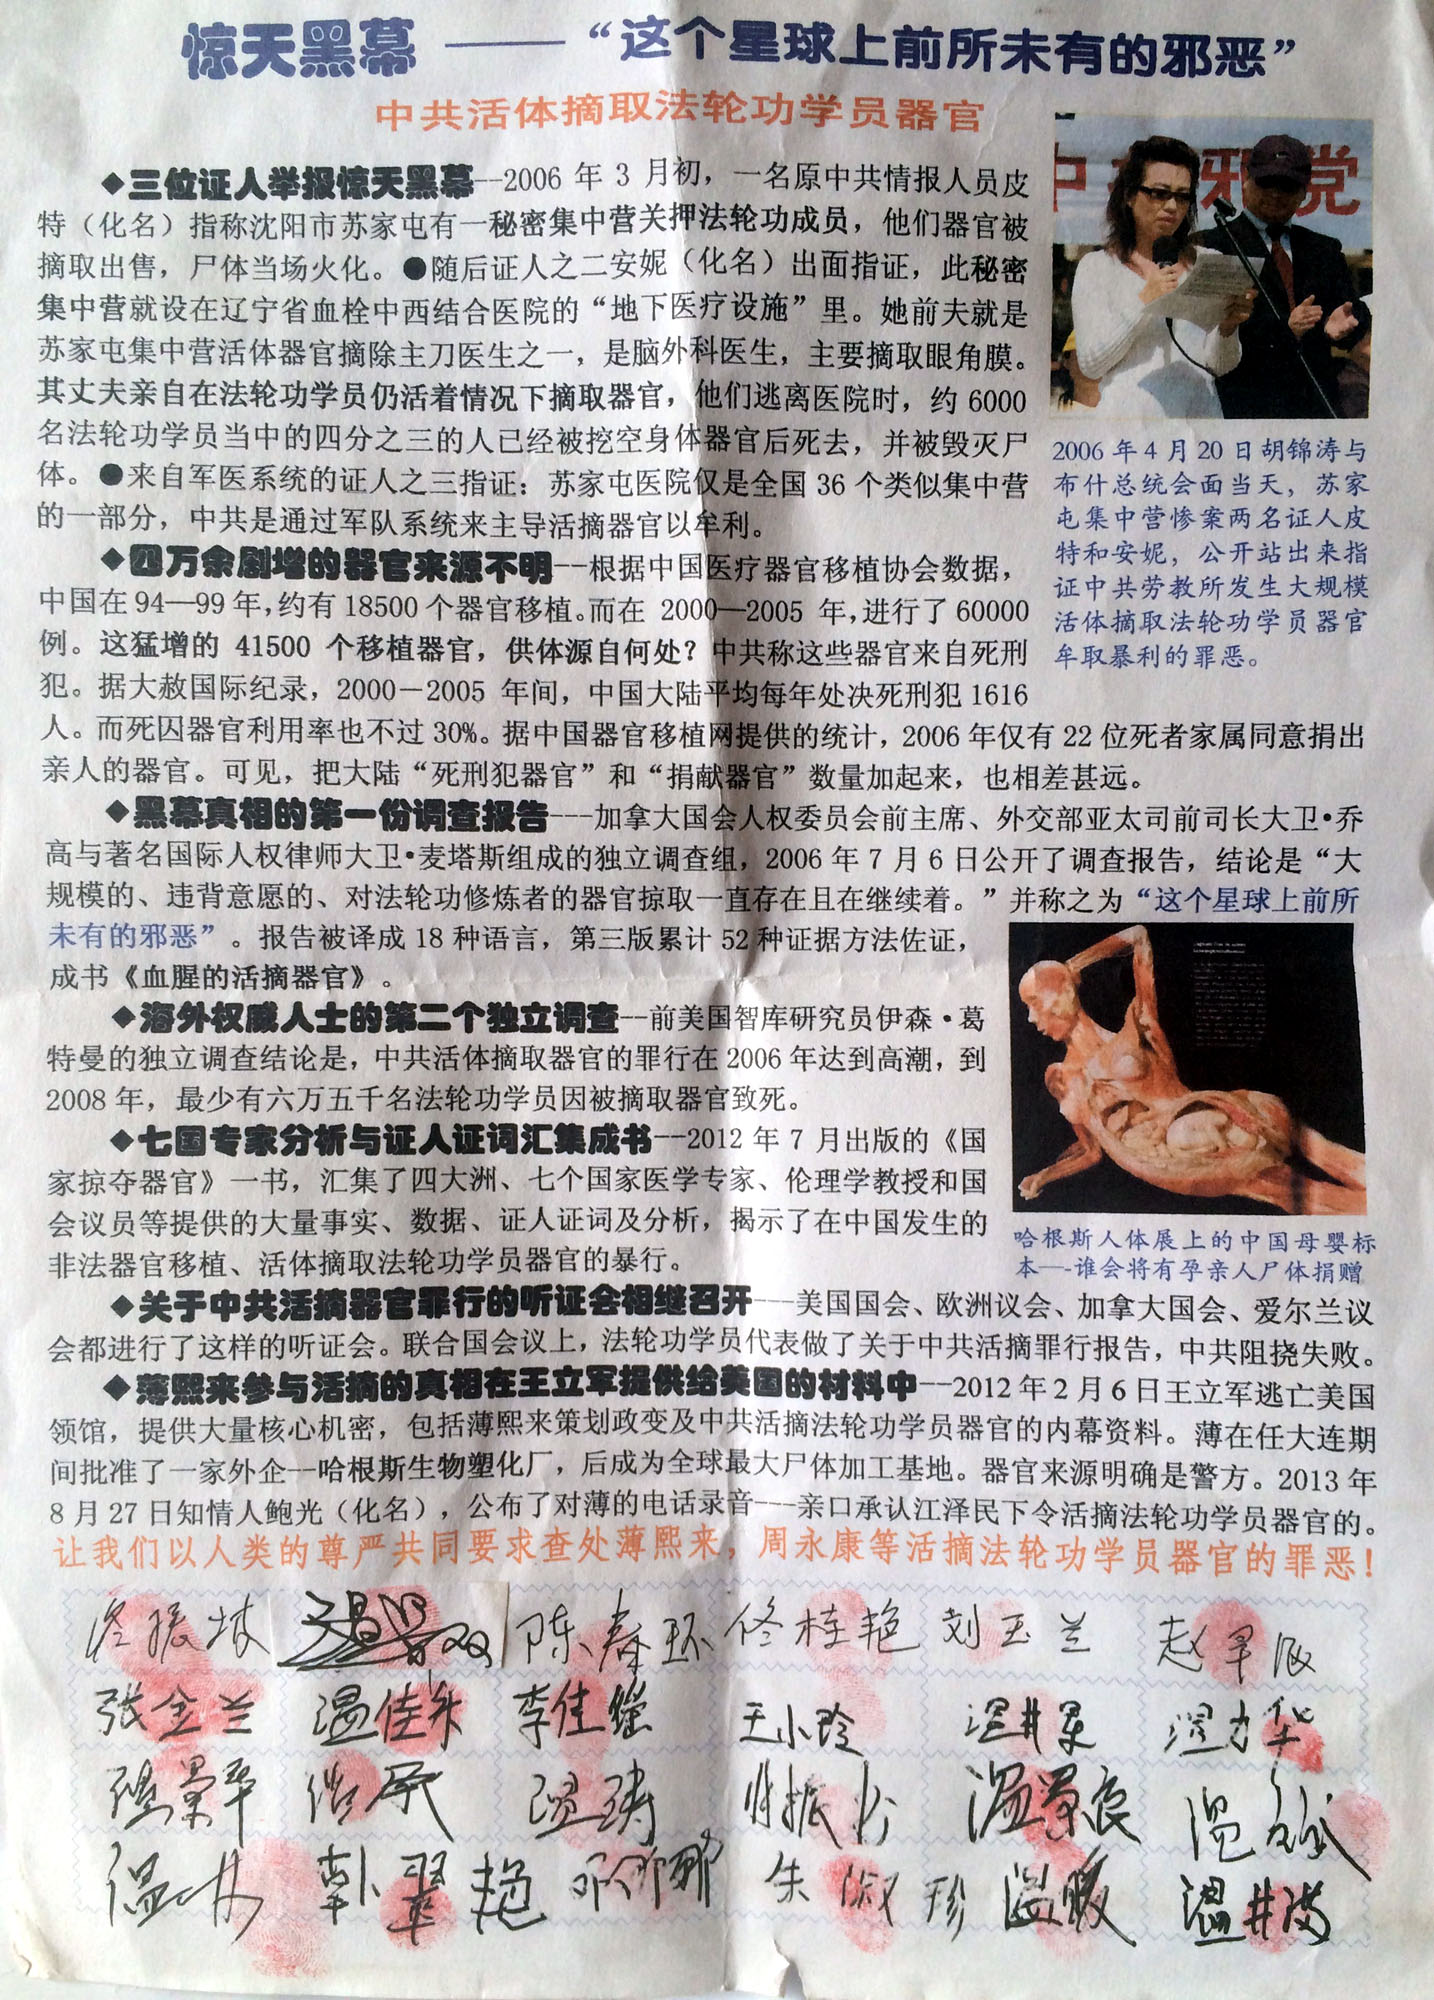 惊天黑幕 ——“这个星球上前所未有的邪恶”
中共活体摘取法轮功学员器官
◆三位证人举报惊天黑幕--2006 年 3 月初，一名原中共情报人员皮
特（化名）指称沈阳市苏家屯有一秘密集中营关押法轮功成员，他们器官被
摘取出售，尸体当场火化。●随后证人之二安妮（化名）出面指证，此秘密
集中营就设在辽宁省血栓中西结合医院的“地下医疗设施”里。她前夫就是
苏家屯集中营活体器官摘除主刀医生之一，是脑外科医生，主要摘取眼角膜。
其丈夫亲自在法轮功学员仍活着情况下摘取器官，他们逃离医院时，约 6000
名法轮功学员当中的四分之三的人已经被挖空身体器官后死去，并被毁灭尸
体。●来自军医系统的证人之三指证：苏家屯医院仅是全国 36 个类似集中营
的一部分，中共是通过军队系统来主导活摘器官以牟利。
中 邪党
2006 年 4 月 20 日胡锦涛与
布什总统会面当天，苏家
屯集中营惨案两名证人皮
特和安妮，公开站出来指
证中共劳教所发生大规模
活体摘取法轮功学员器官
牟取暴利的罪恶。
◆四万余剧增的器官来源不明--根据中国医疗器官移植协会数据，
中国在 94—99 年，约有 18500 个器官移植。而在 2000—2005 年，进行了 60000
例。这猛增的 41500 个移植器官，供体源自何处？中共称这些器官来自死刑
犯。据大赦国际纪录，2000－2005 年间，中国大陆平均每年处决死刑犯 1616
人。而死囚器官利用率也不过 30%。据中国器官移植网提供的统计，2006 年仅有 22 位死者家属同意捐出
亲人的器官。可见，把大陆“死刑犯器官”和“捐献器官”数量加起来，也相差甚远。
◆黑幕真相的第一份调查报告---加拿大国会人权委员会前主席、外交部亚太司前司长大卫•乔
高与著名国际人权律师大卫•麦塔斯组成的独立调查组，2006 年 7 月 6 日公开了调查报告，结论是“大
规模的、违背意愿的、对法轮功修炼者的器官掠取一直存在且在继续着。”并称之为“这个星球上前所
未有的邪恶”。报告被译成 18 种语言，第三版累计 52 种证据方法佐证，
成书《血腥的活摘器官》。
◆海外权威人士的第二个独立调查--前美国智库研究员伊森·葛
特曼的独立调查结论是，中共活体摘取器官的罪行在 2006 年达到高潮，到
2008 年，最少有六万五千名法轮功学员因被摘取器官致死。
◆七国专家分析与证人证词汇集成书--2012 年 7 月出版的《国
家掠夺器官》一书，汇集了四大洲、七个国家医学专家、伦理学教授和国
会议员等提供的大量事实、数据、证人证词及分析，揭示了在中国发生的
非法器官移植、活体摘取法轮功学员器官的暴行。
哈根斯人体展上的中国母婴标
本—-谁会将有孕亲人尸体捐赠
◆关于中共活摘器官罪行的听证会相继召开---美国国会、欧洲议会、加拿大国会、爱尔兰议
会都进行了这样的听证会。联合国会议上，法轮功学员代表做了关于中共活摘罪行报告，中共阻挠失败。
◆薄熙来参与活摘的真相在王立军提供给美国的材料中--2012 年 2 月 6 日王立军逃亡美国
领馆，提供大量核心机密，包括薄熙来策划政变及中共活摘法轮功学员器官的内幕资料。薄在任大连期
间批准了一家外企--哈根斯生物塑化厂，后成为全球最大尸体加工基地。器官来源明确是警方。2013 年
8 月 27 日知情人鲍光（化名），公布了对薄的电话录音---亲口承认江泽民下令活摘法轮功学员器官的。
让我们以人类的尊严共同要求查处薄熙来，周永康等活摘法轮功学员器官的罪恶！
陈春环 佟桂艳 刘玉兰
张金兰 温佳 李佳 王小玲 温井 温力华
温涛 温景良 温
温 翠艳 朱淑珍 温 温井